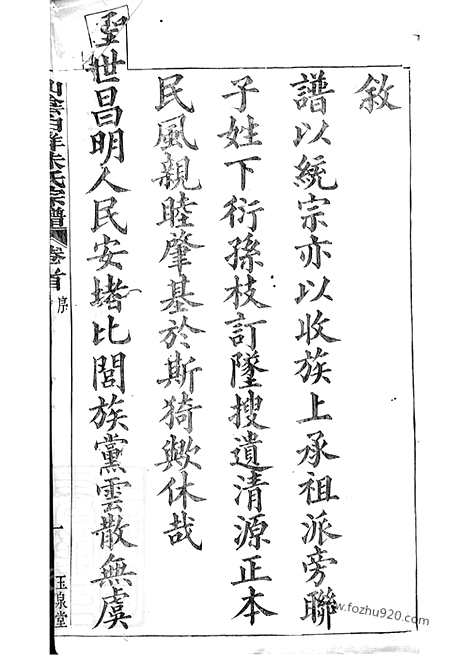 敘
譜以統宗亦以收族上承祖派旁聯
子姓下衍孫枝訂墜搜遺清源正本
民風親睦肇基於斯猗歟休哉
聖世昌明人民安堵比閭族黨雲散無虞
朱氏宗譜
卷首 序
一
玉泉堂
www.fozhu920.com